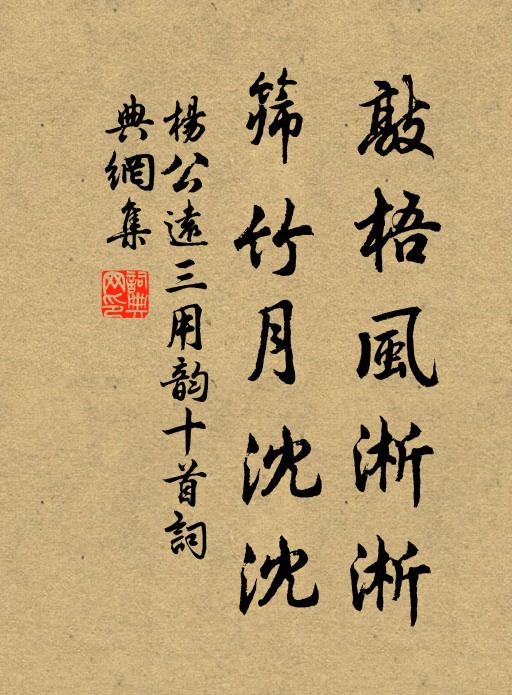 敲梧風淅淅
篩竹月沈沈
楊公遠三用韵十首詞
典網集
詞典网印